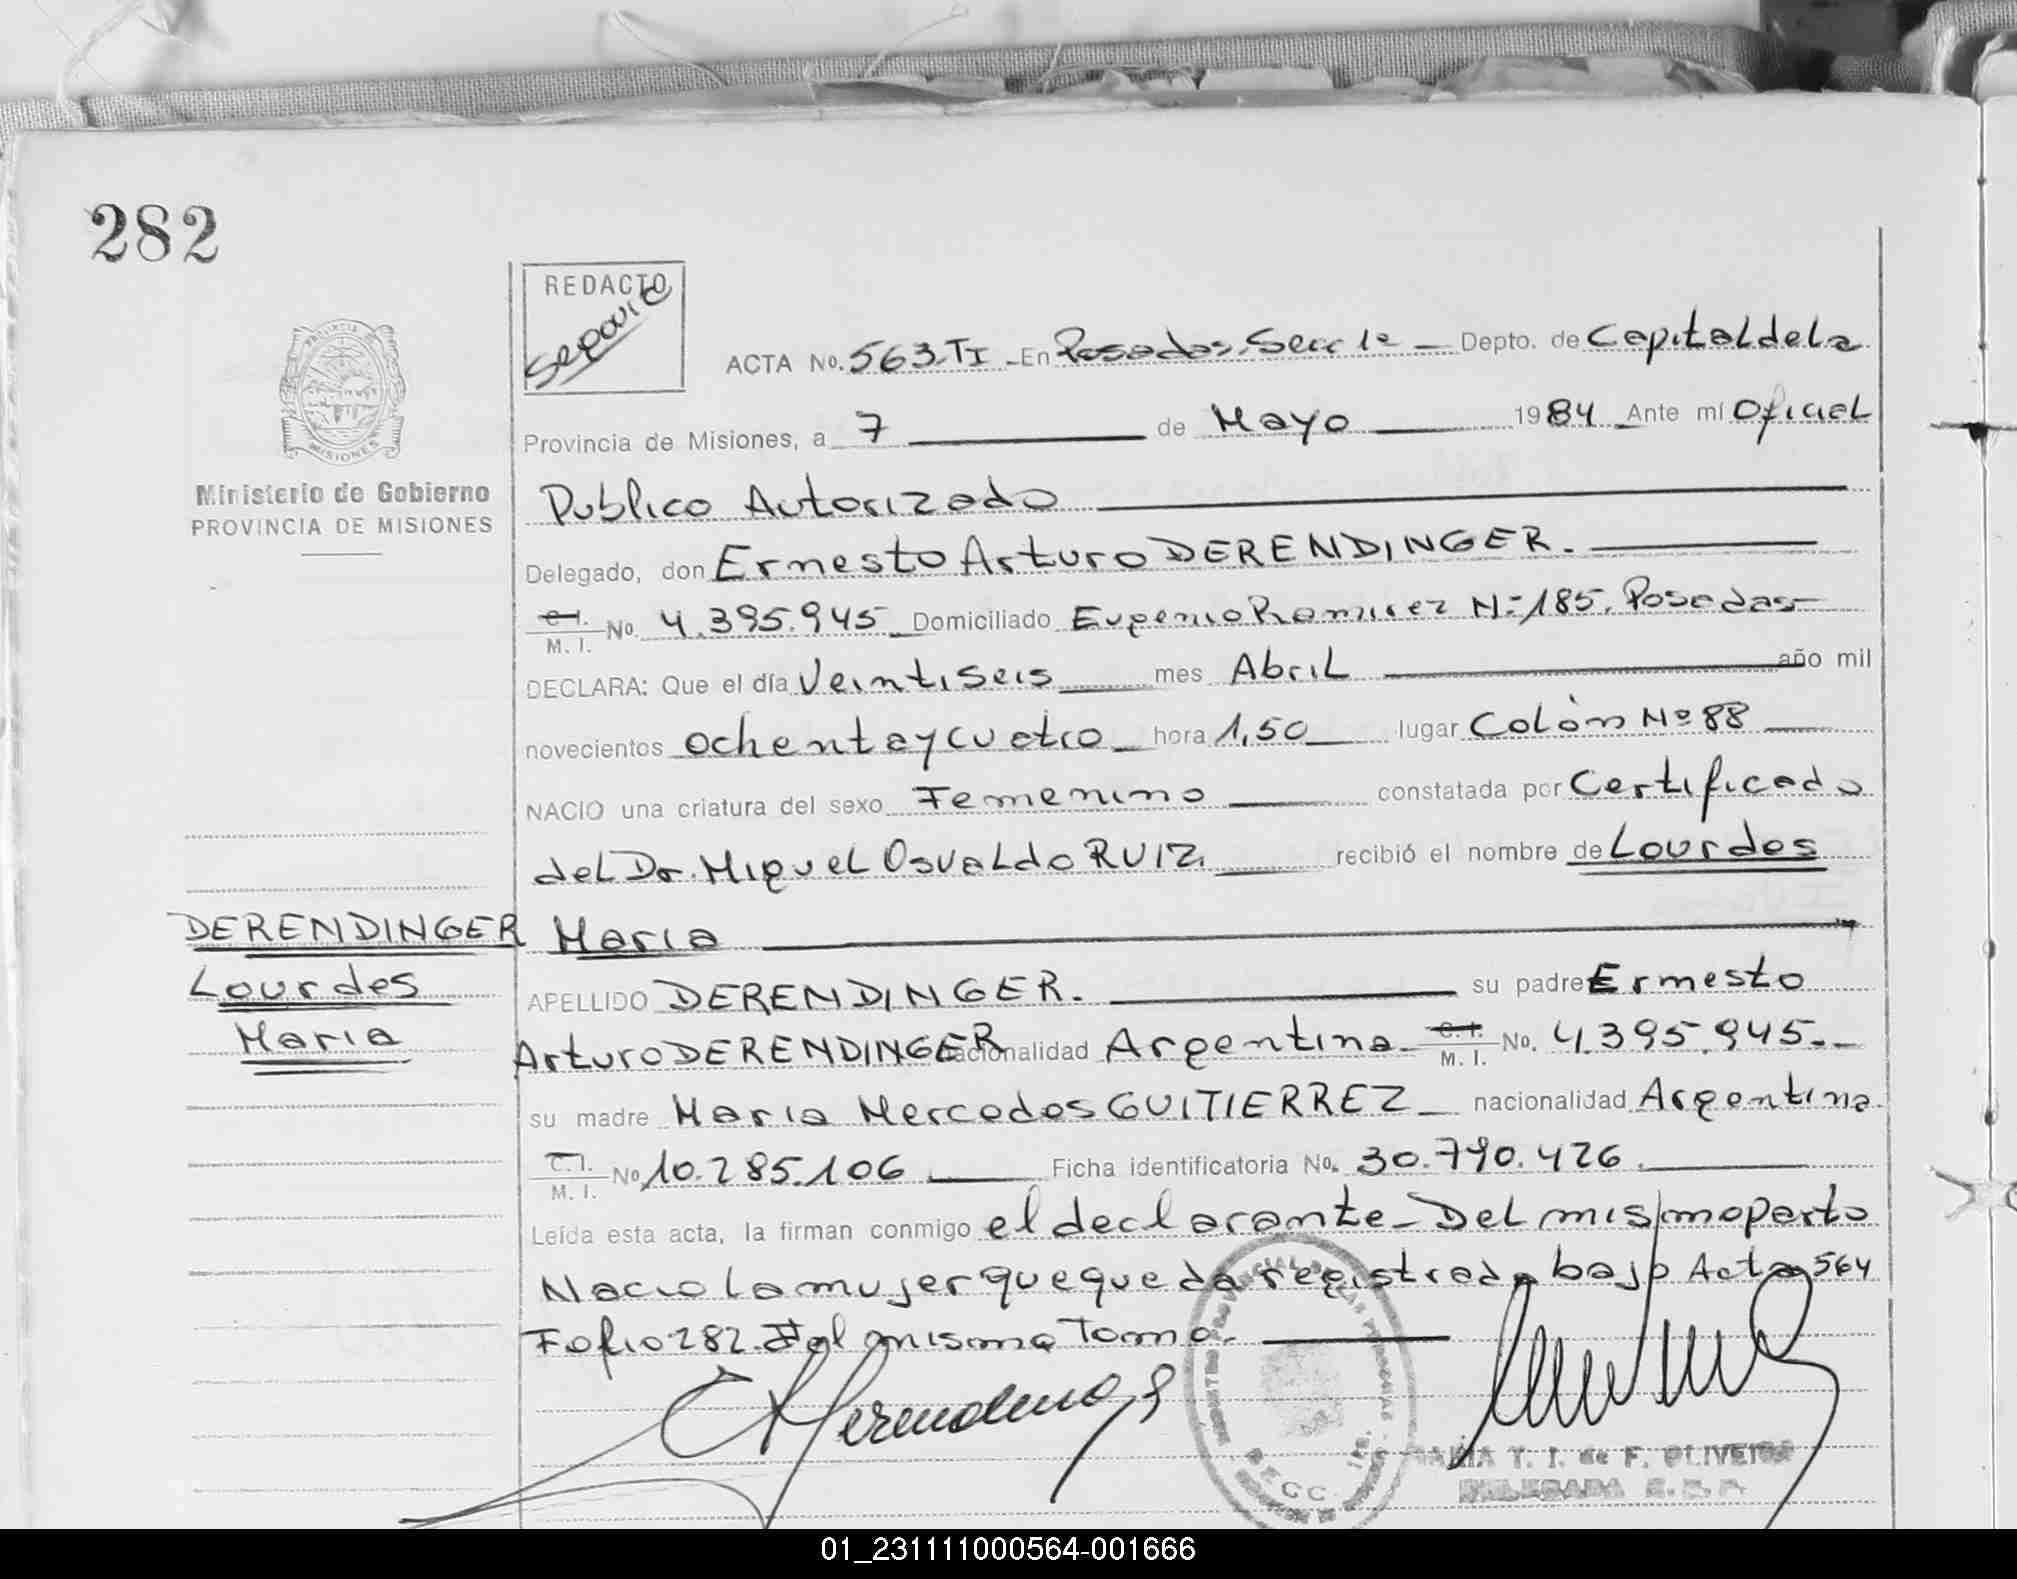 282
REDACTO
ACTA No. 563.TI - En Posadas. Secc 1a - Depto. de Capital de la
Provincia de Misiones, a 7 de Mayo 1984 Ante mí Oficial
Ministerio de Gobierno
PROVINCIA DE MISIONES
Publico Autorizado
Delegado, don Ernesto Arturo DERENDINGER.
C.I. M.I. No. 4.395.945 Domiciliado Eugenio Ramirez Nº 185. Posadas
DECLARA: Que el día Veintiseis mes Abril año mil
novecientos ochenta y cuatro hora 1,50 lugar Colón Nº 88
NACIO una criatura del sexo Femenino constatada por Certificado
del Dr. Miguel Osvaldo RUIZ. recibió el nombre de Lourdes
Maria
DERENDINGER
Lourdes
Maria
APELLIDO DERENDINGER. su padre Ernesto
Arturo DERENDINGER nacionalidad Argentina C.I. M.I. No. 4.395.945.-
su madre Maria Mercedes GUITIERREZ nacionalidad Argentina
C.I. M.I. No 10.285.106 Ficha identificatoria No. 30.790.426.
Leída esta acta, la firman conmigo el declarante - Del mismo parto
Nacio la mujer que queda registrada bajo Acta 564
Folio 282. del mismo Tomo.
T. I. de F. OLIVEIRA
DELEGADA
01_231111000564-001666